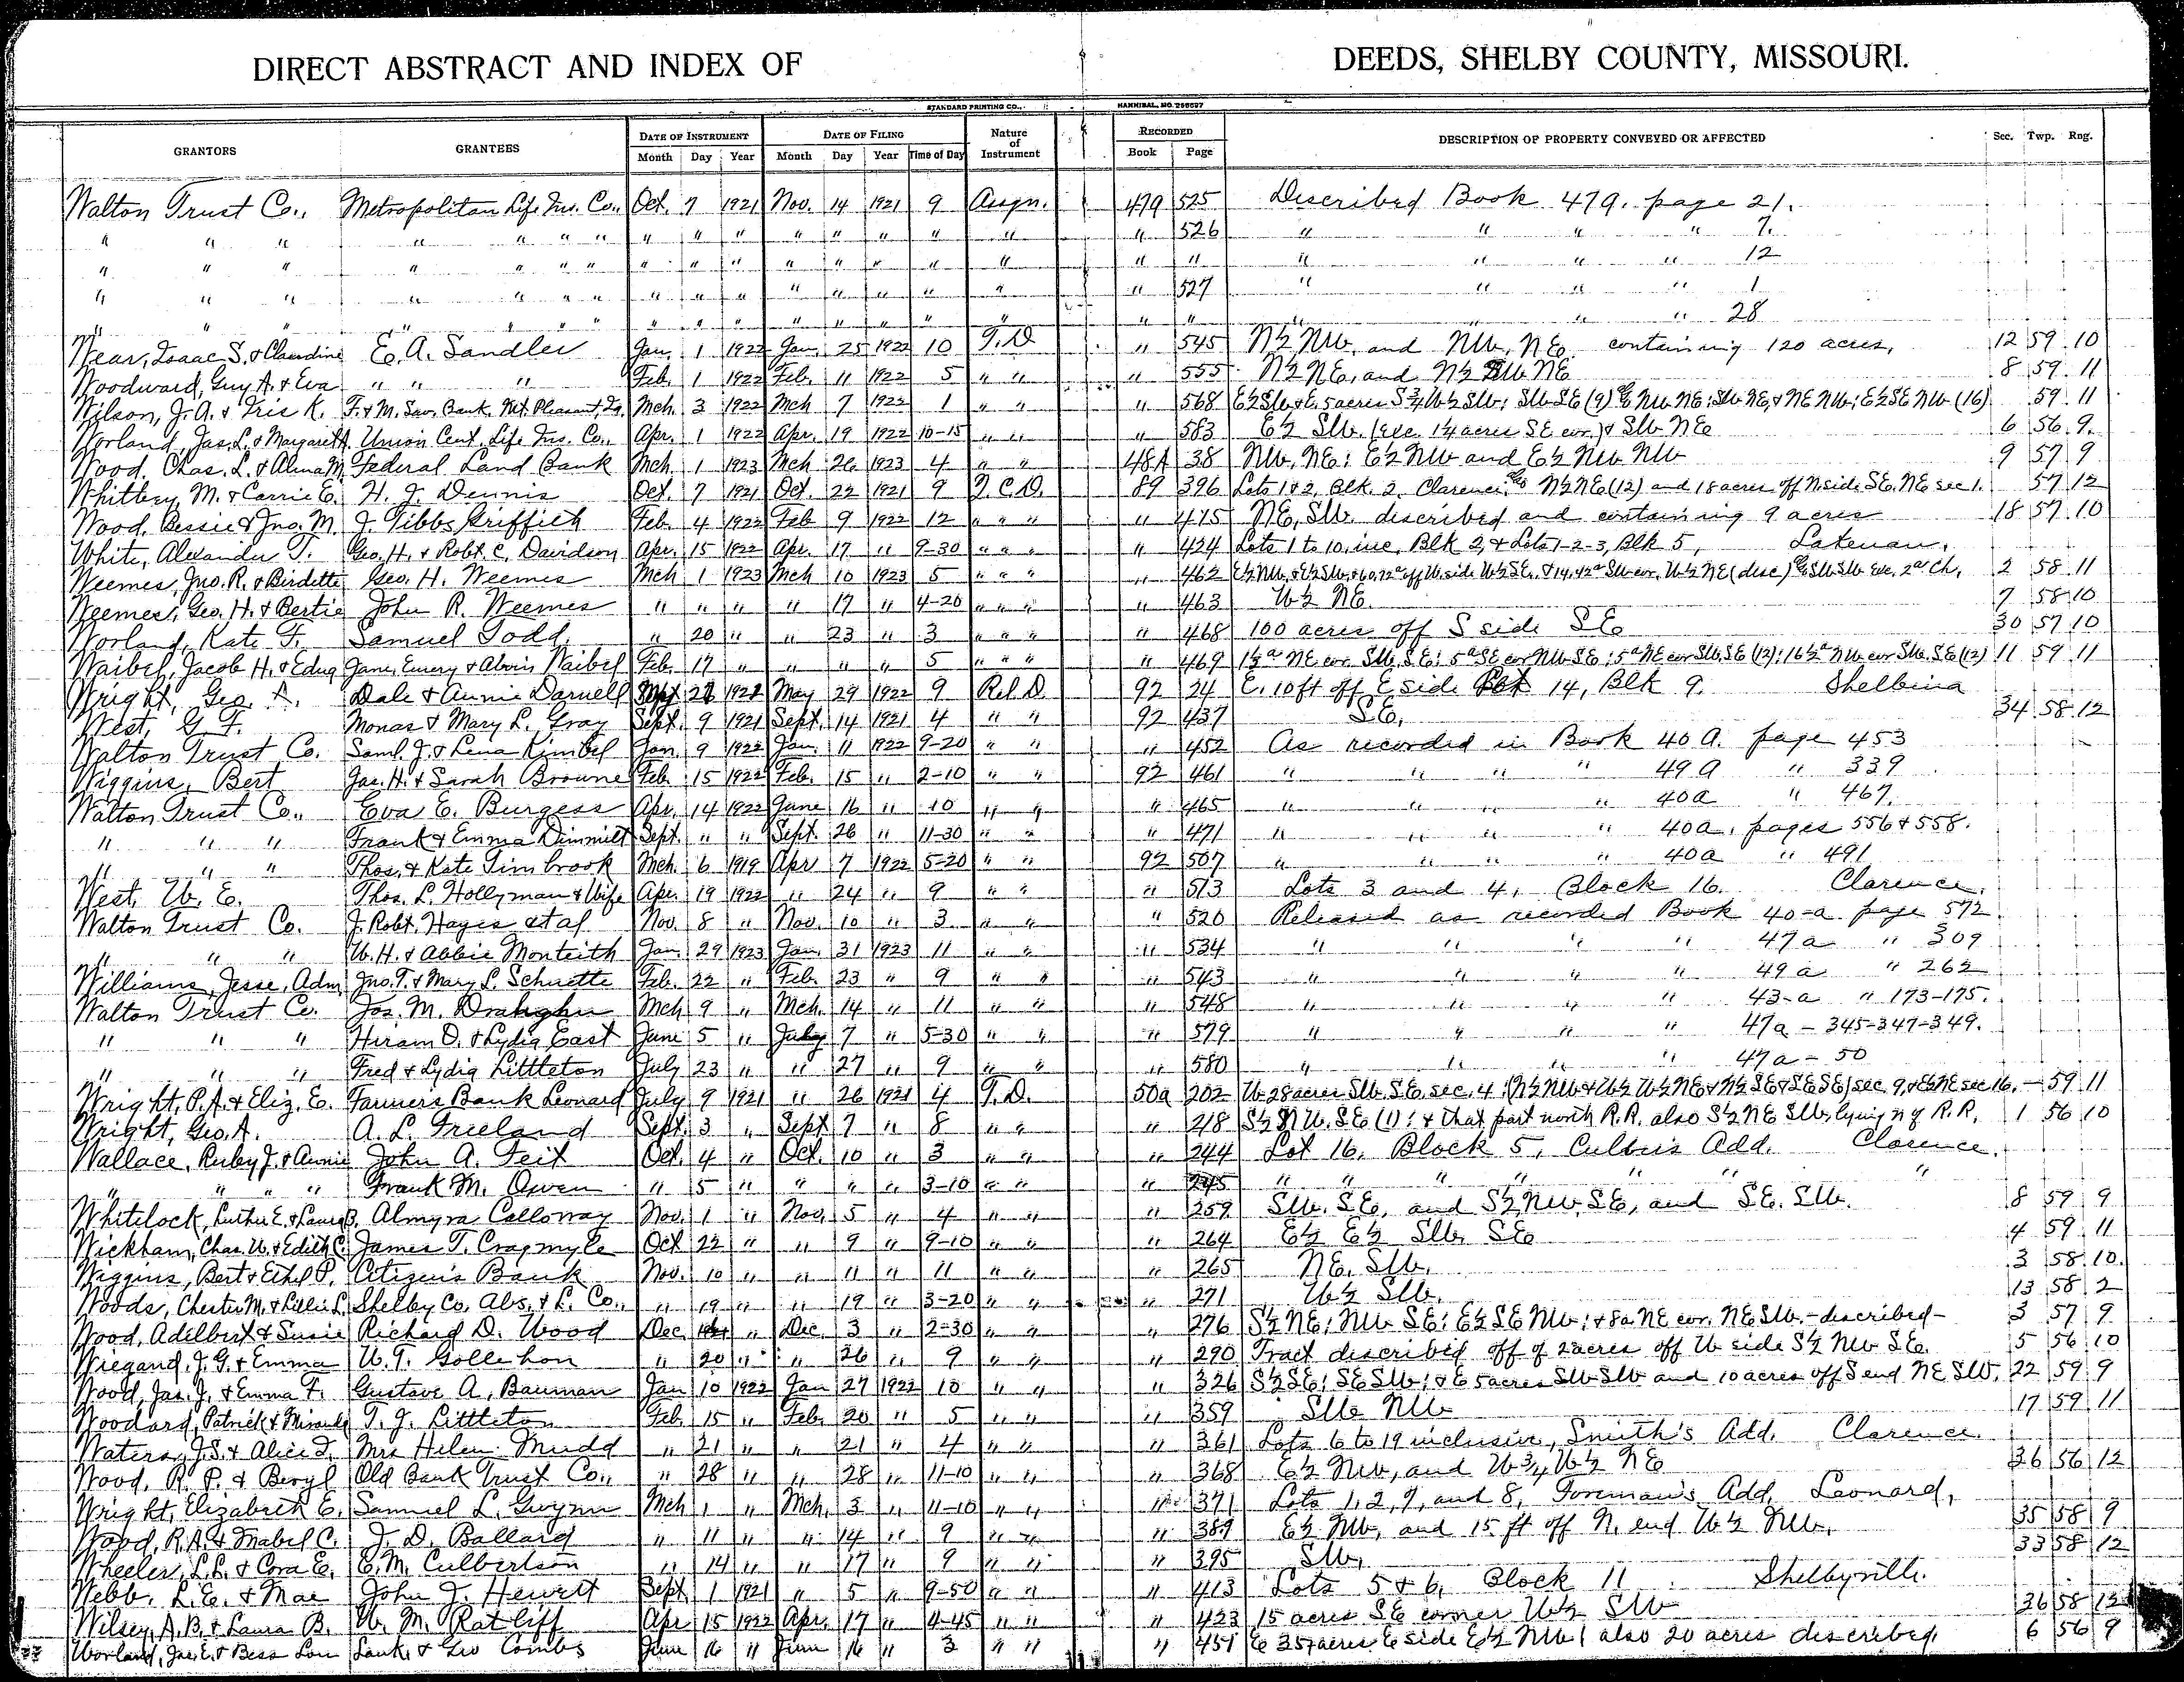 DIRECT ABSTRACT AND INDEX OF DEEDS, SHELBY COUNTY, MISSOURI.
STANDARD PRINTING CO., HANNIBAL, MO.
GRANTORS GRANTEES DATE OF INSTRUMENT Month Day Year DATE OF FILING Month Day Year Time of Day Nature of Instrument RECORDED Book Page DESCRIPTION OF PROPERTY CONVEYED OR AFFECTED Sec. Twp. Rng.
Walton Trust Co., Metropolitan Life Ins. Co., Oct. 7 1921 Nov. 14 1921 9 Assgn. 479 525 Described Book 479. page 21.
" " " " " " " " " " " " " " " " 526 " " " " 7.
" " " " " " " " " " " " " " " " " " " " " 12
" " " " " " " " " " " " " " " " 527 " " " " 1
" " " " " " " " " " " " " " " " " " " " " 28
Wear, Isaac S. & Claudine E. A. Sandler Jan. 1 1922 Jan. 25 1922 10 T.D " 545 N½ NW, and NW, NE containing 120 acres, 12 59 10
Woodward, Guy A. & Eva " " " Feb. 1 1922 Feb. 11 1922 5 " " " 555 N½ NE, and N½ SW NE 8 59 11
Wilson, J. A. & Iris K. F. & M. Sav. Bank Mt. Pleasant, Ia. Mch 3 1922 Mch 7 1922 1 " " " 568 E½ SW & E. 5 acres S¾ W½ SW; SW SE (9) & NW NE; SW NE, & NE NW; E½ SE NW (16) 59 11
Worland, Jas. L. & Margaret Union Cent. Life Ins. Co., Apr. 1 1922 Apr. 19 1922 10-15 " " " 583 E½ SW. (exc. 1¼ acres SE cor.) & SW NE 6 56 9.
Wood, Chas. L. & Alma M. Federal Land Bank Mch. 1 1923 Mch 26 1923 4 " " 48A 38 NW, NE; E½ NW and E½ NW NW 9 57 9
Whittery, M. & Carrie E. H. J. Dennis Oct 7 1921 Oct. 22 1921 9 Q.C.D. 89 396 Lots 1 & 2, Blk. 2. Clarence, & N½ NE (12) and 18 acres off N side SE, NE sec 1. 57 12
Wood, Bessie & Jno. M. J. Tibbs Griffith Feb. 4 1922 Feb 9 1922 12 " " " " 415 NE, SW. described and containing 9 acres 18 57 10
White, Alexander T. Geo. H. & Robt. C. Davidson Apr. 15 1922 Apr. 17 " 9-30 " " " " 424 Lots 1 to 10, inc, Blk 2, & Lots 1-2-3, Blk 5, Lakenan.
Weemes, Jno. R. & Birdette Geo. H. Weemes Mch 1 1923 Mch 10 1923 5 " " " " 462 E½ NW, & E½ SW, off W. side W½ SE, & 14.42a SW cor. W½ NE (desc) & SW SW exc. 2a Ch, 2 58 11
Weemes, Geo. H. & Bertie John R. Weemes " " " " 17 " 4-20 " " " " 463 W½ NE. 7 58 10
Worland, Kate F. Samuel Todd. " 20 " " 23 " 3 " " " " 468 100 acres off S side SE 30 57 10
Waibel, Jacob H. & Edna Jane, Emery & Alvin Waibel Feb. 17 " " " " 5 " " " " 469 1½a NE cor. SW, SE; 5a SE cor NW SE; 5a NE cor SW, SE (12); 16½a NW cor SW. SE (12) 11 59 11
Wright, Geo. A. Dale & Annie Darnell May 29 1922 9 Rel. D. 92 24 E. 10 ft off E side 14, Blk 9. Shelbina
West, G. F. Monas & Mary L. Gray Sept. 9 1921 Sept. 14 1921 4 " " 92 437 SE, 34 58 12
Walton Trust Co. Saml. J. & Lena Kimbel Jan. 9 1922 Jan. 11 1922 9-20 " " " 452 As recorded in Book 40 A. page 453
Wiggins, Bert Jas. H. & Sarah Browne Feb. 15 1922 Feb. 15 " 2-10 " " 92 461 " " " " 49 A " 339
Walton Trust Co., Eva E. Burgess Apr. 14 1922 June 16 " 10 " " " 465 " " " " 40a " 467.
" " " Frank & Emma Dimmitt Sept. " " Sept. 26 " 11-30 " " " 471 " " " " 40a, pages 556 & 558.
" " " Thos. & Kate Timbrook Mch. 6 1919 Apr 7 1922 5-20 " " 92 507 " " " " 40a " 491
West, W. E. Thos. L. Hollyman & Wife Apr. 19 1922 " 24 " 9 " " " 513 Lots 3 and 4, Block 16. Clarence.
Walton Trust Co. J. Robt. Hayes et al Nov. 8 " Nov. 10 " 3 " " " 520 Released as recorded Book 40-a page 572
" " " W. H. & Abbie Monteith Jan 29 1923 Jan. 31 1923 11 " " " 534 " " " " 47a " 309
Williams, Jesse, Adm. Jno. T. & Mary L. Schuette Feb. 22 " Feb. 23 " 9 " " " 543 " " " " 49a " 262
Walton Trust Co. Jos. M. Mch 9 " Mch. 14 " 11 " " " 548 " " " " 43-a " 173-175.
" " " Hiram D. & Lydia East June 5 " July 7 " 5-30 " " " 579 " " " " 47a - 345-347-349.
" " " Fred & Lydia Littleton July 23 " " 27 " 9 " " " 580 " " " " 47a - 50
Wright, P. A. & Eliz. E. Farmers Bank Leonard July 9 1921 " 26 1921 4 T.D. 50a 202 W. 28 acres SW. SE. sec. 4; (N½ NW & W½ W½ NE & N½ SE & SE SE) sec 9, & E½ NE sec 16. — 59 11
Wright, Geo. A. A. L. Freeland Sept. 3 " Sept 7 " 8 " " " 218 S½ NW. SE (1); & that part north R.R. also S½ NE SW, lying n of R.R. 1 56 10
Wallace, Ruby J. & Annie John A. Feit Oct. 4 " Oct. 10 " 3 " " " 244 Lot 16, Block 5, Culbers Add. Clarence.
" " " " Frank M. Owen " 5 " " " " 3-10 " " " 245 " " " " " " "
Whitelock, Luther E. & Laura B. Almyra Calloway Nov. 1 " Nov. 5 " 4 " " " 259 SW. SE, and S½ NW. SE, and SE. SW. 8 59 9
Wickham, Chas. W. & Edith C. James T. Cragmyle Oct 22 " " 9 " 9-10 " " " 264 E½ E½ SW, SE 4 59 11
Wiggins, Bert & Ethel P. Citizen's Bank Nov. 10 " " 11 " 11 " " " 265 NE. SW. 3 58 10.
Woods, Chester M. & Lillie L. Shelby Co. Abs. & L. Co., " 19 " " 19 " 3-20 " " " 271 W½ SW. 13 58 2
Wood, Adelbert & Susie Richard D. Wood Dec. " Dec. 3 " 2-30 " " " 276 S½ NE; NW SE; E½ SE NW; & 8a. NE cor. NE SW. - described - 3 57 9
Wiegand, J. G. & Emma W. T. Gollehon " 20 " " 26 " 9 " " " 290 Tract described off of 2 acres off W side S½ NW SE. 5 56 10
Wood, Jas. J. & Emma F. Gustave A. Bauman Jan 10 1922 Jan 27 1922 10 " " " 326 S½ SE; SE SW; & E 5 acres SW SW and 10 acres off S end NE SW. 22 59 9
Woodard, Patrick & T. J. Littleton Feb. 15 " Feb. 20 " 5 " " " 359 SW NW 17 59 11
Waters, J. S. & Alice T. Mrs Helen Mudd " 21 " " 21 " 4 " " " 361 Lots 6 to 19 inclusive, Smith's Add. Clarence.
Wood, R. P. & Beryl Old Bank Trust Co., " 28 " " 28 " 11-10 " " " 368 E½ NW, and W¾ W½ NE 36 56 12
Wright, Elizabeth E. Samuel L. Gwynn Mch 1 " Mch. 3 " 11-10 " " " 371 Lots 1, 2, 7, and 8, Foreman's Add. Leonard,
Wood, R. A. & Mabel C. J. D. Ballard " 11 " " 14 " 9 " " " 389 E½ NW, and 15 ft off N. end W½ NW. 35 58 9
Wheeler, L. L. & Cora E. E. M. Culbertson " 14 " " 17 " 9 " " " 395 SW, 33 58 12
Webb, L. E. & Mae John J. Hewitt Sept. 1 1921 " 5 " 9-50 " " " 413 Lots 5 & 6, Block 11 Shelbyville.
Wilsey, A. B. & Laura B. W. M. Ratliff Apr 15 1922 Apr. 17 " 4-45 " " " 423 15 acres SE corner W½ SW 36 58 12
Worland, Jas. E. & Bess Lou Lank. & Geo Combs June 16 " June 16 " 3 " " " 451 E 35 acres E side E½ NW; also 20 acres described. 6 56 9